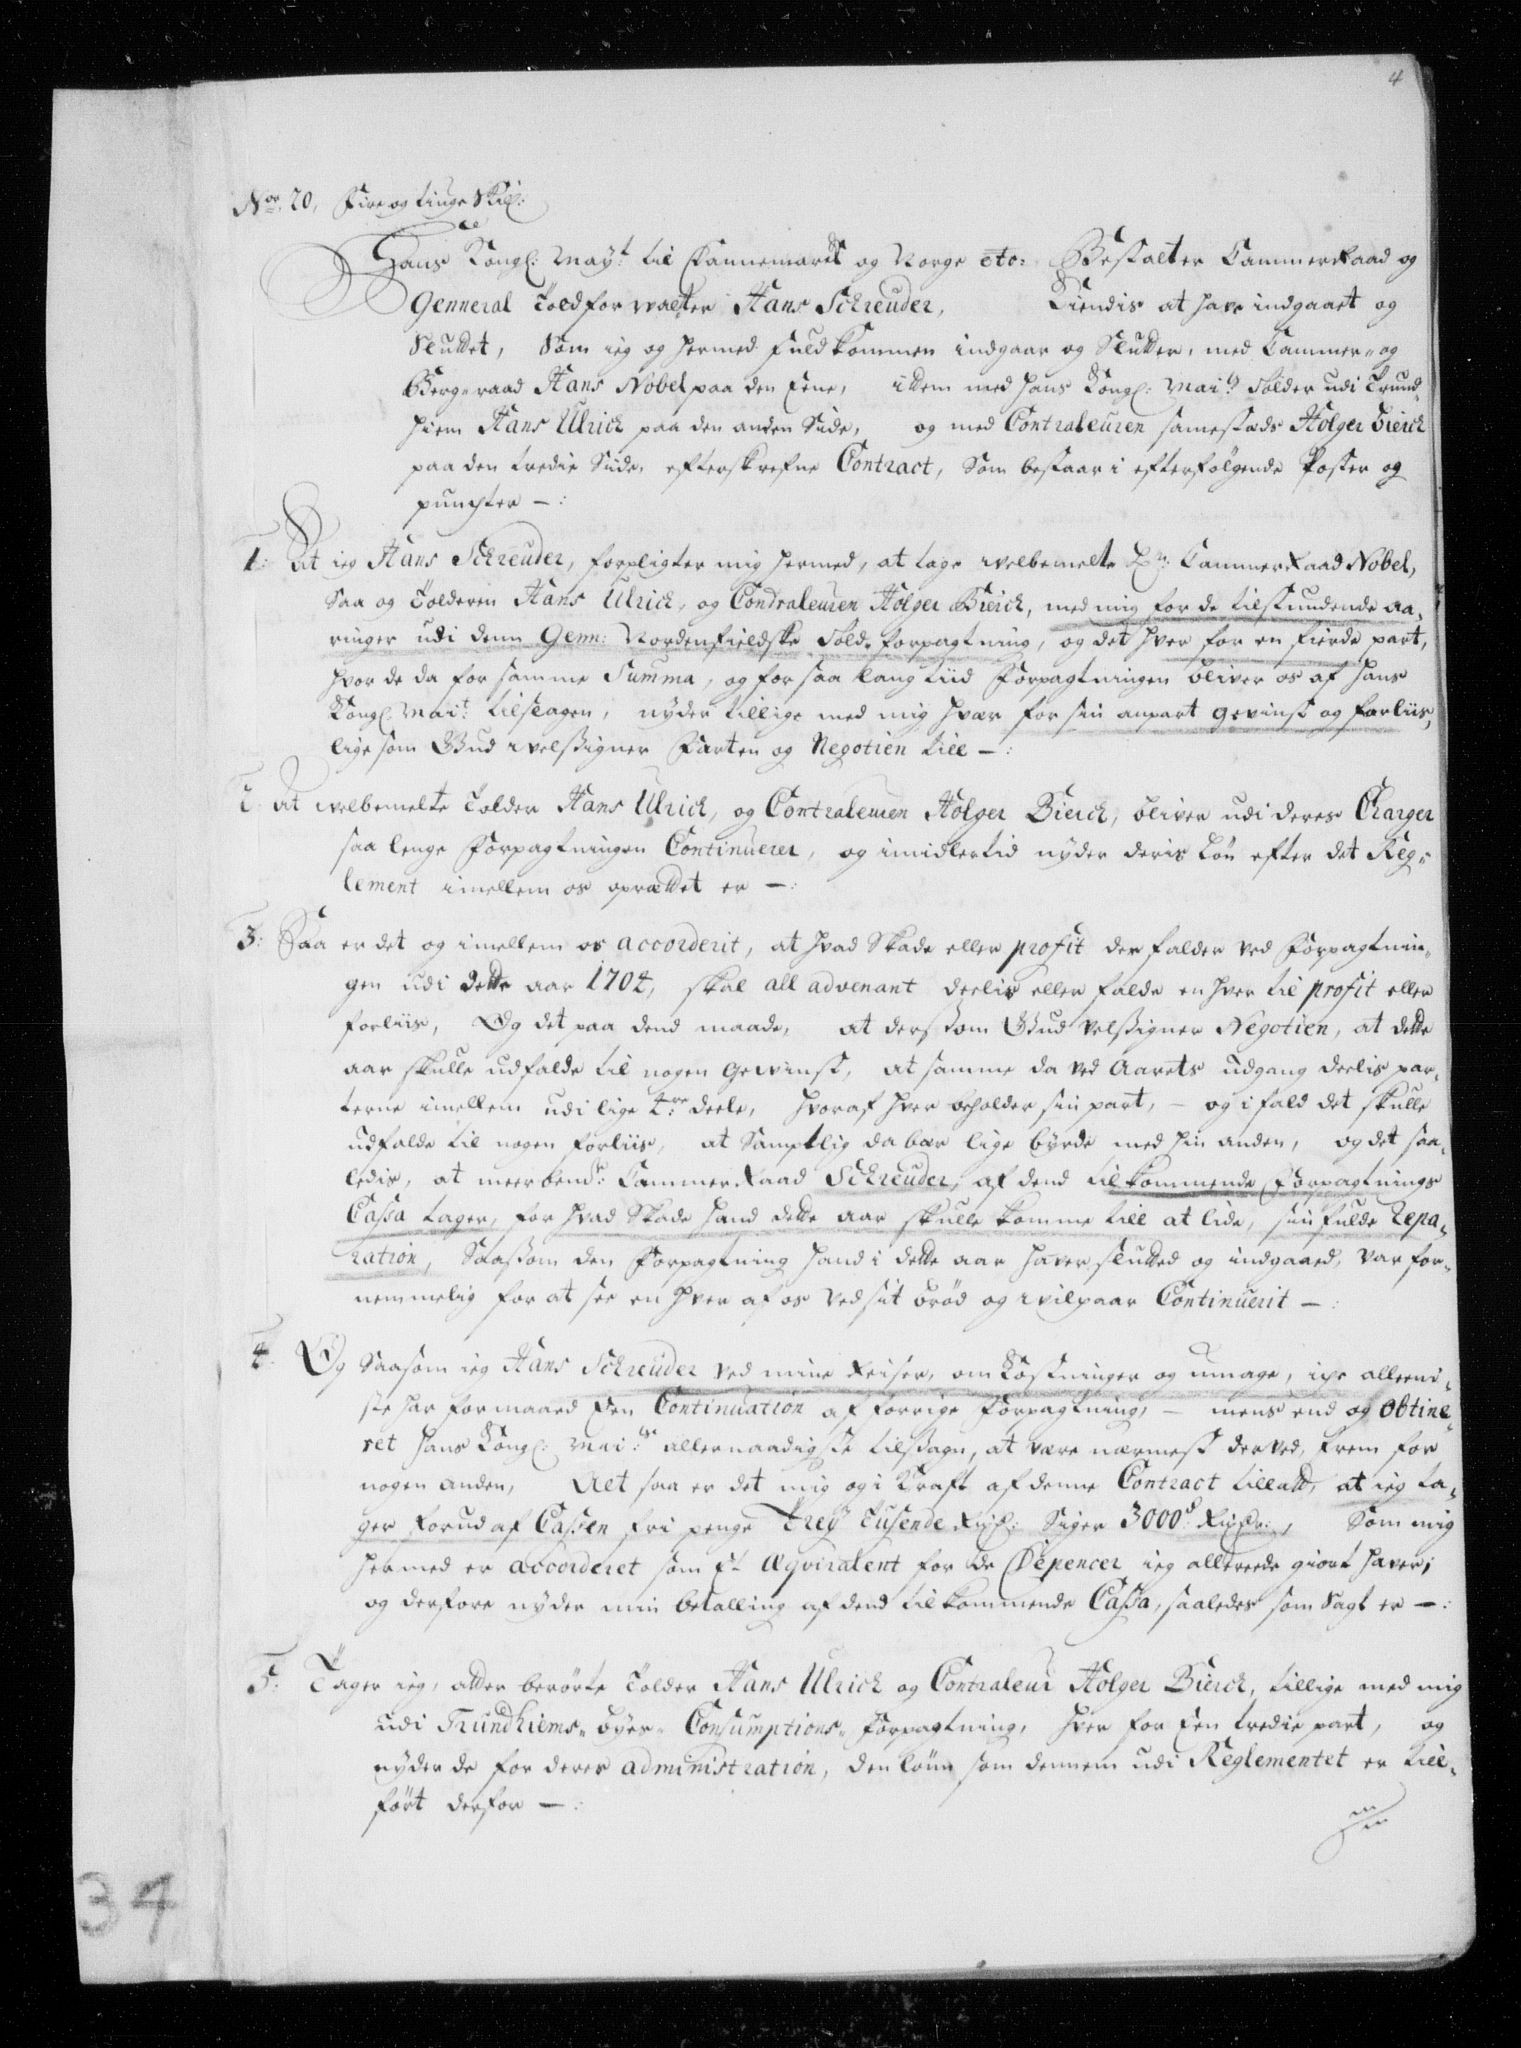 4
No: 20, Fire og tiuge Skill:
Hans Kongl: Mayt: til Dannemarck og Norge etc: Bestalter Cammer Raad og
Genneral Toldforwalter Hans Schreuder, Kiendis at have indgaaet og
Sluttet, Som ieg og hermed fuldkommen indgaar og Slutter, med Cammer- og
Berg-raad Hans Nobel paa den Eene, ittem med Hans Kongl: Mait: Tolder udi Trund-
hiem Hans Ulrich paa den anden Side, og med Contraleuren samesteds Holger Bierch
paa den tredie Side, efterskrefne Contract, Som bestaar i efterfølgende Poster og
puncter —:
1: At ieg Hans Schreuder, forpligter mig hermed, at tage welbemelte Hr: Cammer Raad Nobel,
Saa og Tolderen Hans Ulrich, og Contraleuren Holger Bierch, med mig for de tilstundende aa-
ringer udi denn Genn: Nordenfieldske Told-forpagtning, og det hver for en fierde part,
hvor de da for samme Summa, og for saa lang tiid Forpagtningen bliver os af Hans
Kongl: Mait: tilslagen, nyder tillige med mig hvær for sin anpart gevinst og forliis,
lige som Gud welsigner Farten og Negotien till —:
2 At welbemelte Tolder Hans Ulrich, og Contraleuren Holger Bierch, bliver udi deres Charger
saa lenge Forpagtningen Continuerer, og imidlertid nyder deris Løn efter det Reg-
lement imellem os oprættet er —:
3: Saa er det og imellem os accorderit, at hvad Skade eller profit der falder ved Forpagtnin-
gen udi dette aar 1704, skal all advenant deelis eller falde en hver til profit eller
forliis, Og det paa dend maade, at dersom Gud velsigner Negotien, at dette
aar skulle udfalde til nogen gewinst, at samme da ved Aarets udgang deelis par-
terne imellem udi lige 4re deele, hvoraf hver beholder sin part, — og i fald det skulle
udfalde til nogen forliis, at Samptlig da bær lige byrde med hin anden, og det saa-
ledis, at meerbemt: Cammer Raad Schreuder, af dend tilkommende Forpagtnings
Cassa tager, for hvad Skade hand dette aar skulle komme till at lide, sin fulde repa-
ration, Saasom den Forpagtning hand i dette aar haver sluttet og indgaaed, var for-
nemmelig for at see en hver af os ved sit brød og wilkaar Continuerit —:
4: Og Saasom ieg Hans Schreuder ved mine Reiser, omkostninger og umage, icke alleeni-
ste har formaaed Een Continuation af forrige Forpagtning, — mens end og obtine-
ret Hans Kongl: Mai:ts allernaadigste tilsagn, at være nærmest derved, frem for
nogen anden, Alt saa er det mig og i Kraft af denne Contract tilladt, at ieg ta-
ger forud af Cassen fri penge Trey Tusende Rixd: Siger 3000 Rixdr:, Som mig
hermed er accorderet som et æqvivalent for de Depencer ieg allereede giort haver,
og derfore nyder min betalling af dend tilkommende Cassa, saaledes som Sagt er —:
5: Tager ieg, atter berørte Tolder Hans Ulrich og Contraleur Holger Bierch, tillige med mig
udi Trundhiems-byes-Consumptions-Forpagtning, hver for Een tredie part, og
nyder de for deres administration, den lønn som dennem udi Reglementet er till-
ført derfor —:
34